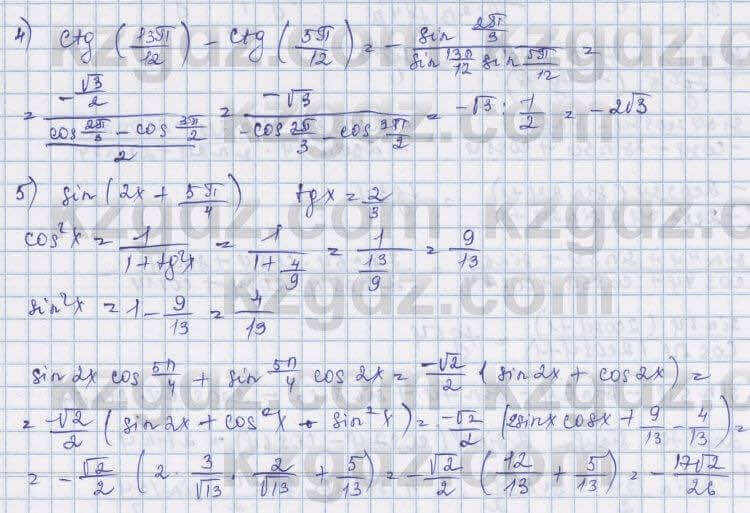 4) ctg (13π/12) - ctg (5π/12) = - sin 2π/3 / sin 13π/12 sin 5π/12 =
= -√3/2 / (cos 2π/3 - cos 3π/2)/2 = -√3 / -cos 2π/3 - cos 3π/2 = -√3 : 1/2 = -2√3
5) sin (2x + 5π/4) tgx = 2/3
cos²x = 1/1+tg²x = 1/1+4/9 = 1/13/9 = 9/13
sin²x = 1 - 9/13 = 4/13
sin2x cos 5π/4 + sin 5π/4 cos 2x = -√2/2 (sin2x + cos2x) =
= √2/2 (sin2x + cos²x - sin²x) = -√2/2 (2sinx cosx + 9/13 - 4/13) =
= -√2/2 (2 · 3/√13 · 2/√13 + 5/13) = -√2/2 (12/13 + 5/13) = - 17√2/26
kzgdz.com